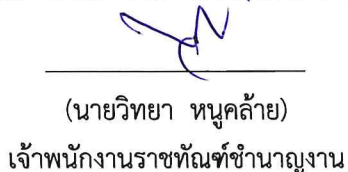 (นายวิทยา หนูคล้าย)
เจ้าพนักงานราชทัณฑ์ชำนาญงาน